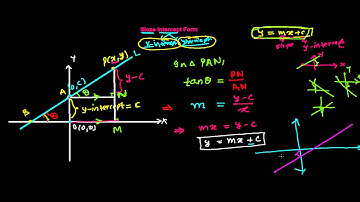 Slope Intercept Form
y = mx + c
slope
y-intercept
Y
L
P(x, y)
y-c
(0, c)
A
θ
N
y-intercept = c
B
θ
O(0,0)
M
X
In Δ PAN,
tanθ = PN/AN
⇒ m = y-c/x
⇒ mx = y-c
y = mx + c